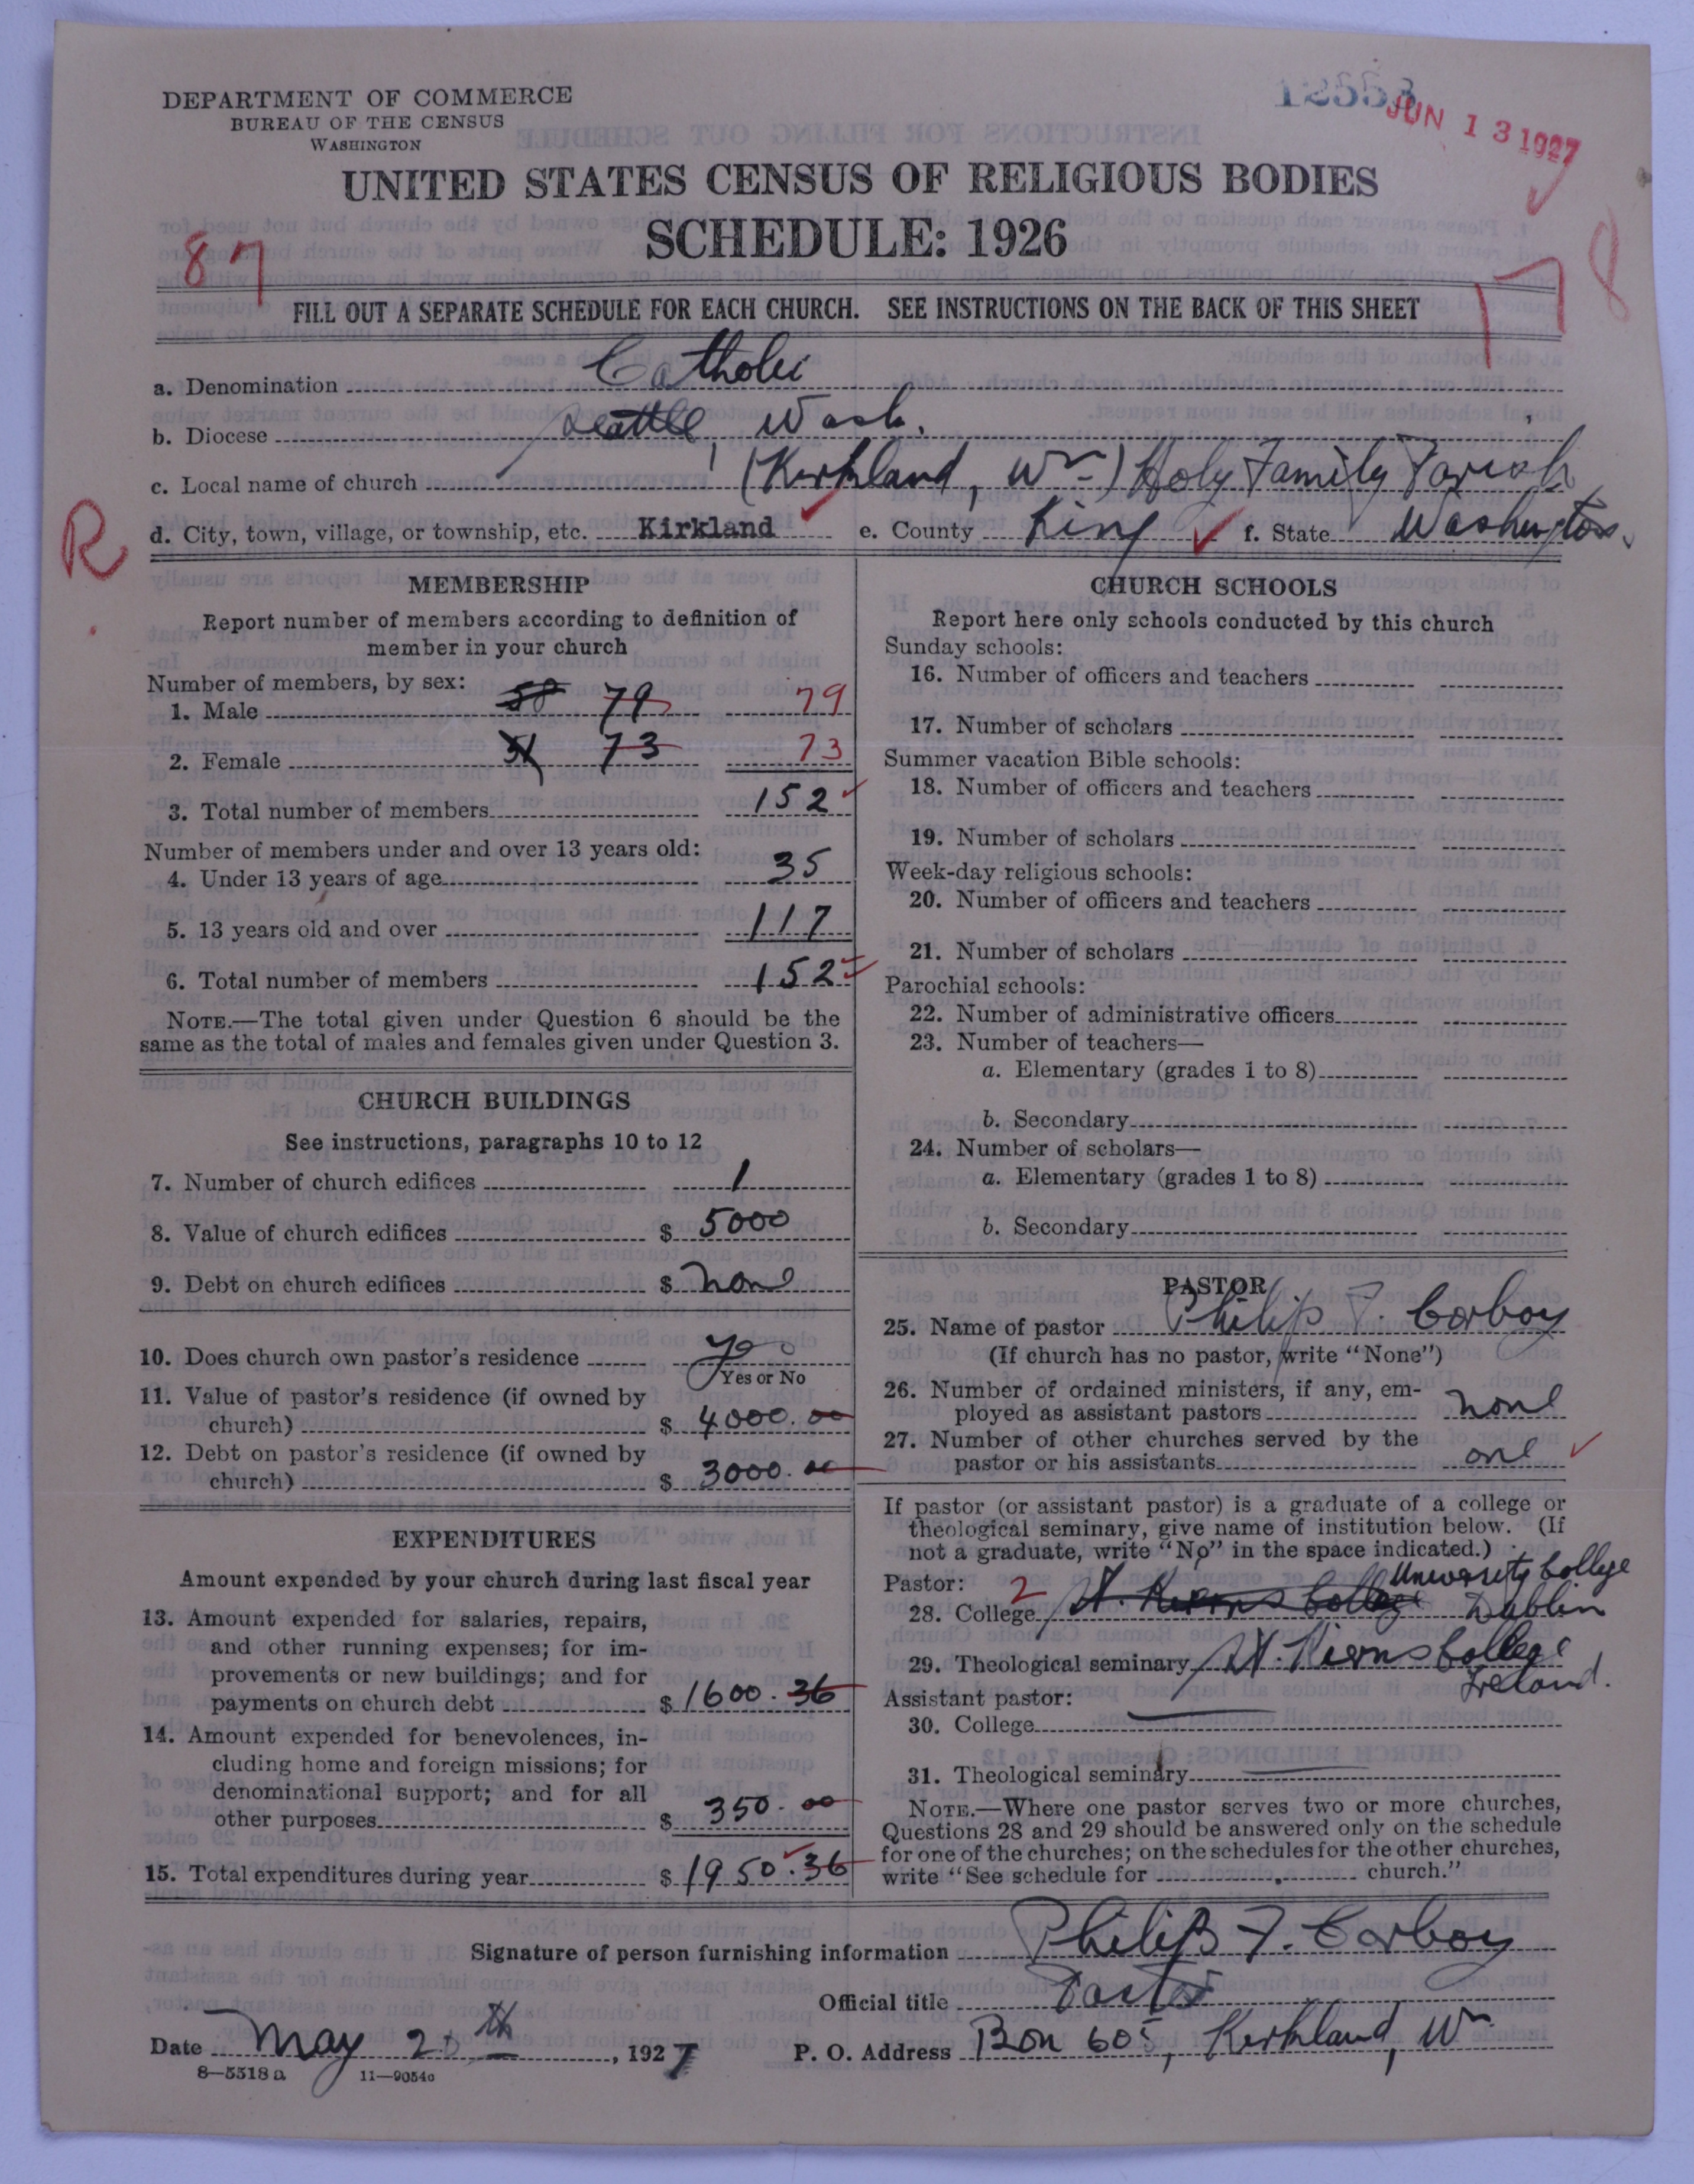 DEPARTMENT OF COMMERCE
BUREAU OF THE CENSUS
WASHINGTON
JUN 13 1927
UNITED STATES CENSUS OF RELIGIOUS BODIES
SCHEDULE: 1926
87
178
FILL OUT A SEPARATE SCHEDULE FOR EACH CHURCH. SEE INSTRUCTIONS ON THE BACK OF THIS SHEET
a. Denomination Catholic
b. Diocese Seattle, Wash.
c. Local name of church (Kirkland, Wn) Holy Family Parish
R
d. City, town, village, or township, etc. Kirkland e. County King f. State Washington
MEMBERSHIP
Report number of members according to definition of
member in your church
Number of members, by sex:
1. Male 58 79 79
2. Female 51 73 73
3. Total number of members 152
Number of members under and over 13 years old:
4. Under 13 years of age 35
5. 13 years old and over 117
6. Total number of members 152
NOTE.—The total given under Question 6 should be the
same as the total of males and females given under Question 3.
CHURCH BUILDINGS
See instructions, paragraphs 10 to 12
7. Number of church edifices 1
8. Value of church edifices $ 5000
9. Debt on church edifices $ none
10. Does church own pastor's residence Yes
Yes or No
11. Value of pastor's residence (if owned by
church) $ 4000.00
12. Debt on pastor's residence (if owned by
church) $ 3000.00
EXPENDITURES
Amount expended by your church during last fiscal year
13. Amount expended for salaries, repairs,
and other running expenses; for im-
provements or new buildings; and for
payments on church debt $ 1600.36
14. Amount expended for benevolences, in-
cluding home and foreign missions; for
denominational support; and for all
other purposes $ 350.00
15. Total expenditures during year $ 1950.36
CHURCH SCHOOLS
Report here only schools conducted by this church
Sunday schools:
16. Number of officers and teachers
17. Number of scholars
Summer vacation Bible schools:
18. Number of officers and teachers
19. Number of scholars
Week-day religious schools:
20. Number of officers and teachers
21. Number of scholars
Parochial schools:
22. Number of administrative officers
23. Number of teachers—
a. Elementary (grades 1 to 8)
b. Secondary
24. Number of scholars—
a. Elementary (grades 1 to 8)
b. Secondary
PASTOR
25. Name of pastor Philip F. Corboy
(If church has no pastor, write "None")
26. Number of ordained ministers, if any, em-
ployed as assistant pastors none
27. Number of other churches served by the
pastor or his assistants one
If pastor (or assistant pastor) is a graduate of a college or
theological seminary, give name of institution below. (If
not a graduate, write "No" in the space indicated.)
Pastor: 2 University College
28. College St. Kierns College Dublin
29. Theological seminary St. Kierns College
Ireland.
Assistant pastor:
30. College
31. Theological seminary
NOTE.—Where one pastor serves two or more churches,
Questions 28 and 29 should be answered only on the schedule
for one of the churches; on the schedules for the other churches,
write "See schedule for church."
Signature of person furnishing information Philip F. Corboy
Official title Pastor
Date May 2 th, 1927 P. O. Address Box 605, Kirkland, Wn
8—5518a 11—9054c